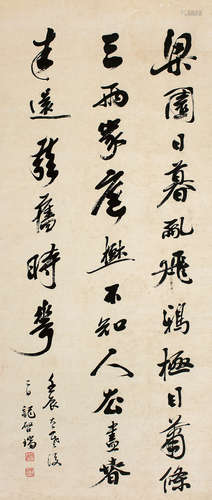 梁園日暮亂飛鴉極目蕭條
三兩家庭樹不知人去盡春
來還發舊時花
壬辰
龍啓瑞